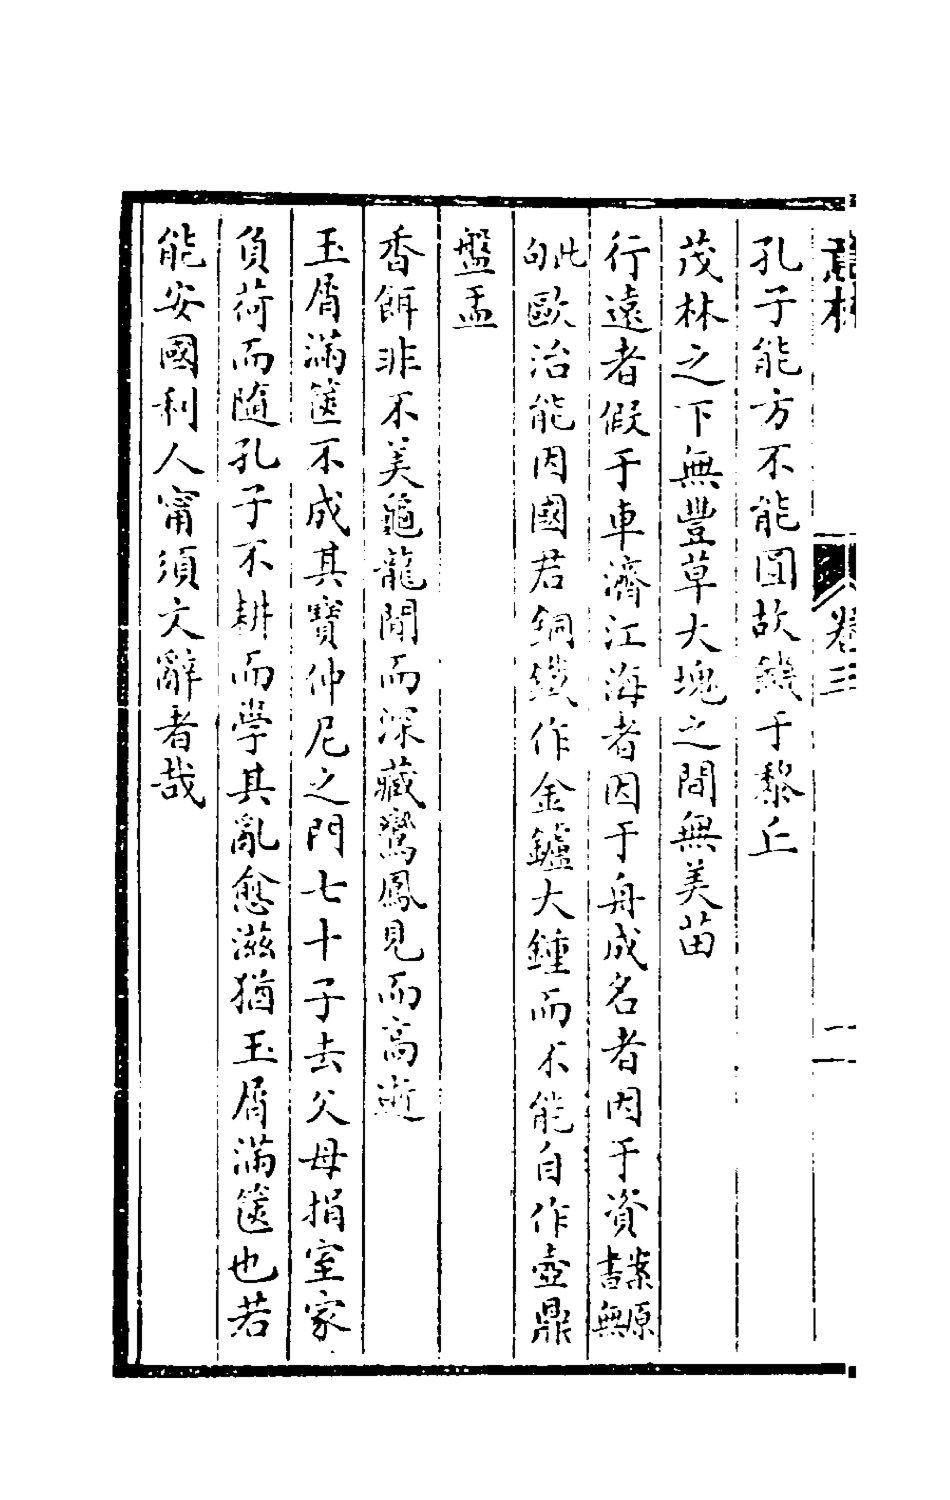 意林
卷三
二
孔子能方不能圓故饑于黎丘
茂林之下無豐草大塊之間無美苗
行遠者假于車濟江海者因于舟成名者因于資案原書無
此句歐治能因國君銅鐵作金鑪大鍾而不能自作壺鼎
盤盂
香餌非不美龜龍聞而深藏鸞鳳見而高逝
玉屑滿篋不成其寶仲尼之門七十子去父母捐室家
負荷而隨孔子不耕而學其亂愈滋猶玉屑滿篋也若
能安國利人甯須文辭者哉